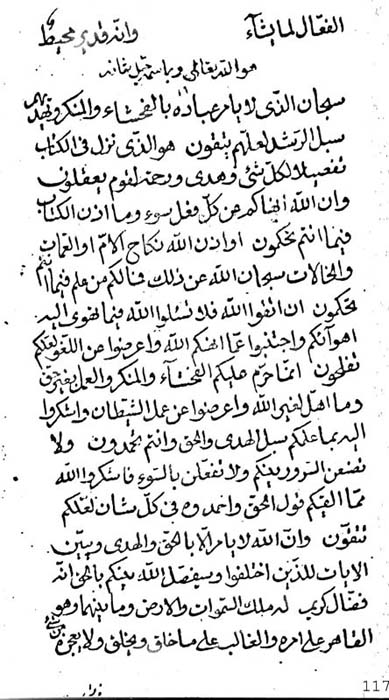 الفعّال لما يشآء وانّه قدير محيط
هو الله تعالى وباسمه جل شانه
سبحان الذّى لا يامر عباده بالفحشاء والمنكر ويهديهم
سبل الرشد لعلّهم يتّقون هو الذّى نزل فى الكتاب
تفصيلا لكلّ شئ وهدى ورحمة لقوم يعقلون
وان الله انهاكم عن كلّ فعل سوء وما اذن الكتاب
فيما انتم تحكمون او اذن الله نكاح الامّ او العمات
والخالات سبحان الله عن ذلك فما لكم من علم فيما انتم
تحكمون ان اتقوا الله فلا تسئلوا الله فيما تهوى اليه
اهوآئكم واجتنبوا عمّا انهيكم الله واعرضوا عن اللغو لعلكم
تفلحون انّما حرّم عليكم الفحشآء والمنكر والعمل بغير حق
وما اهلّ لغير الله واعرضوا عن عمل الشيطان واشكروا
اليه بما علمكم سبل الهدى والحق وانتم تحمدون ولا
تصنعن السرور بينكم ولا تفعلن بالسّوء فاشكروا الله
ممّا القيكم قول الحق واحمدوه فى كلّ شان لعلّكم
تتقون وانّ الله لا يامر الّا بالحق والهدى ويبيّن
الايات للذّين اختلفوا وسيفصل الله بينكم بالحق انّه
فصّال كريم له ملك السّموات والارض وما بينهما وهو
القاهر على امره والغالب على ما خلق ويخلق ولا يعجزه من شئ
117